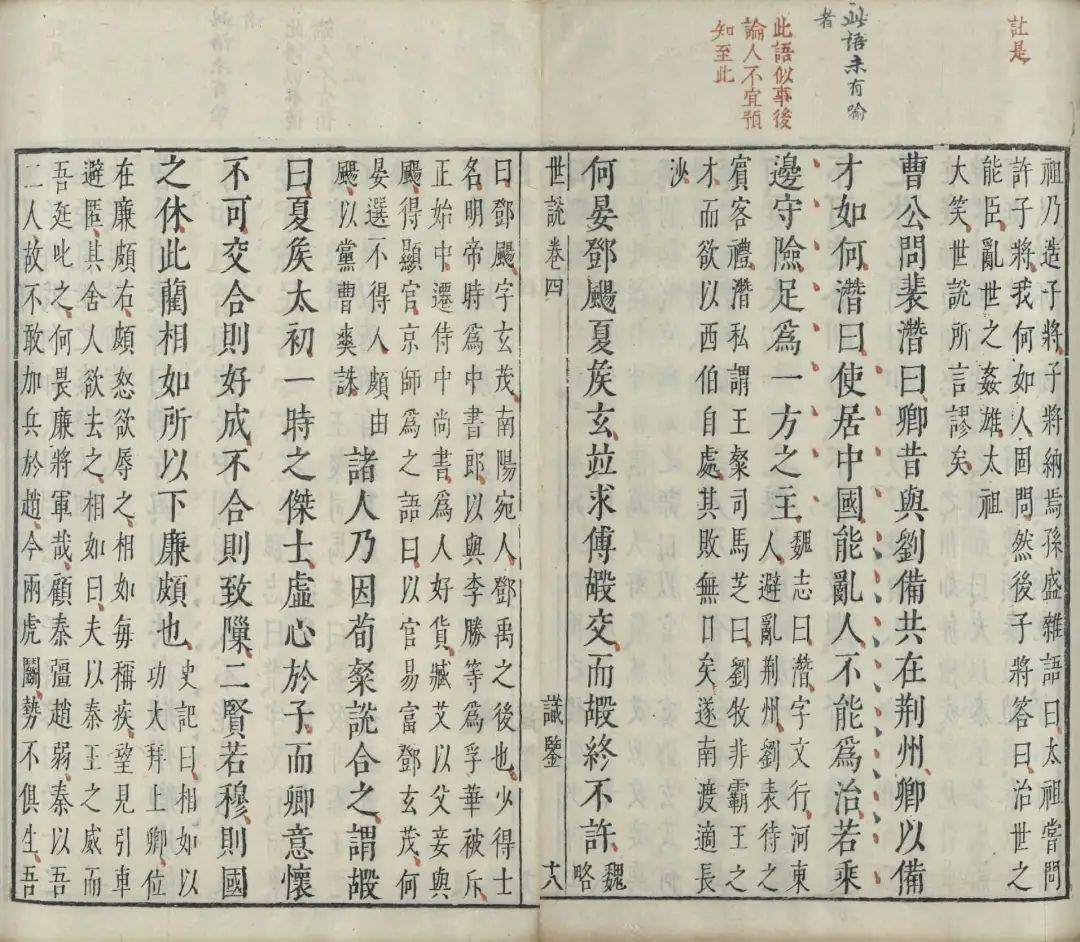 註是
此語未有喻
者
此語似事後
論人不宜預
知至此
祖乃造子將子將納焉孫盛雜語曰太祖嘗問
許子將我何如人固問然後子將答曰治世之
能臣亂世之姦雄太祖
大笑世說所言謬矣
曹公問裴潛曰卿昔與劉備共在荆州卿以備
才如何潛曰使居中國能亂人不能爲治若乘
邊守險足爲一方之主
魏志曰潛字文行河東
人避亂荆州劉表待之
賓客禮潛私謂王粲司馬芝曰劉牧非霸王之
才而欲以西伯自處其敗無日矣遂南渡適長
沙
何晏鄧颺夏矦玄竝求傅嘏交而嘏終不許
魏
略
世說卷四
識鑒
十八
曰鄧颺字玄茂南陽宛人鄧禹之後也少得士
名明帝時爲中書郎以與李勝等爲浮華被斥
正始中遷侍中尚書爲人好貨臧艾以父妾與
颺得顯官京師爲之語曰以官易富鄧玄茂何
晏選不得人頗由
颺以黨曹爽誅
諸人乃因荀粲說合之謂嘏
曰夏矦太初一時之傑士虛心於子而卿意懷
不可交合則好成不合則致隟二賢若穆則國
之休此藺相如所以下廉頗也
史記曰相如以
功大拜上卿位
在廉頗右頗怒欲辱之相如每稱疾望見引車
避匿其舍人欲去之相如曰夫以秦王之威而
吾廷叱之何畏廉將軍哉顧秦彊趙弱秦以吾
二人故不敢加兵於趙今兩虎鬭勢不俱生吾